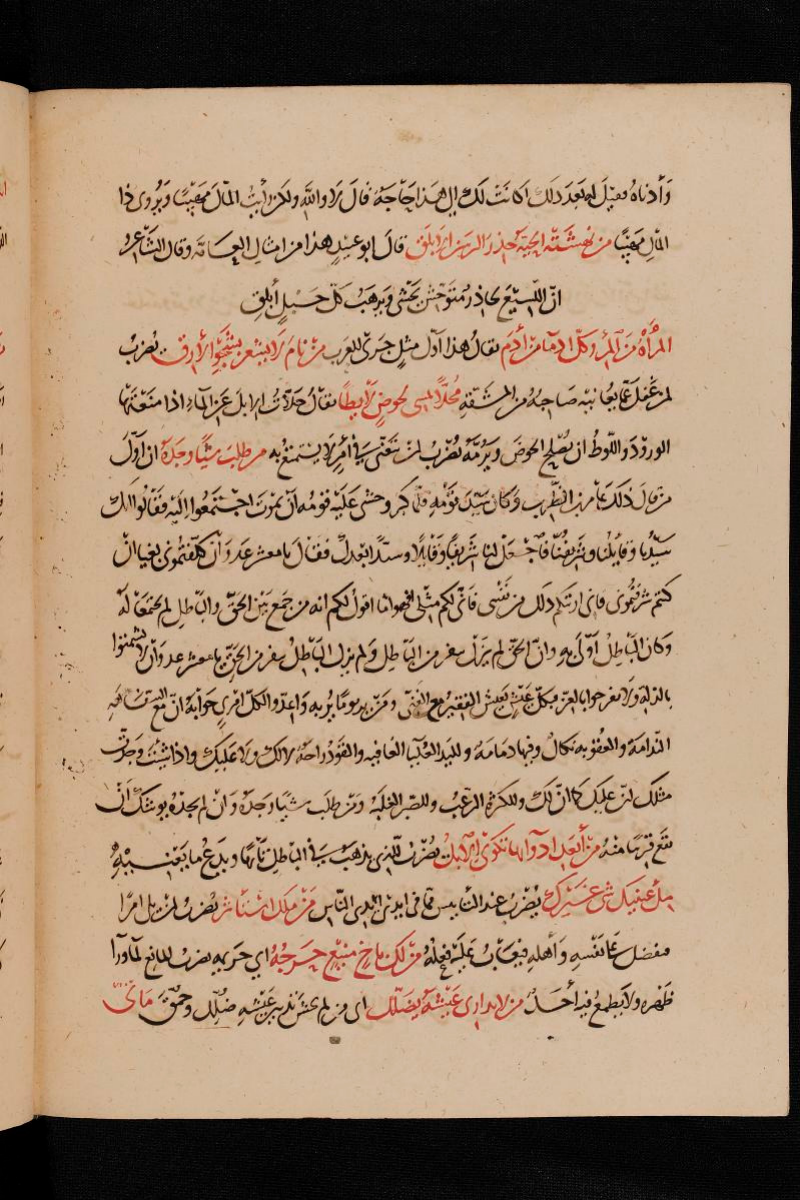 وَأدناهُ فقيل له بَعدَ ذلك اكانَت لك إلى هَذا حاجَةٌ قالَ لَا والله ولكن رأيتُ المالَ مَهيبًا وَيُروى ذا
المالِ مهيبًا من نهشَتْه الحيّة حَذِرَ الرسَن الأبلَق قالَ ابو عبيدٍ هذا من امثالِ العامّة وقال الشاعر
انّ اللسيعَ لحاذرٌ متوَحّشٌ يخشى ويرهَبُ كلّ حَبْلٍ أبلقِ
المرأةُ مِنَ المرءِ وكلّ ادماءَ مِن أدَم يقالُ هذا اوّل مثلٍ جَرى للعَرب من نامَ لَا يشعر بشَجْوِ الأرِق يُضربُ
لمن غفل عمّا يعانيه صَاحِبُه من المشقة مُحَلّأً يمسى لحوضٍ لَايطًا يقالُ حَلّأتُ الإبلَ عَن الماءِ اذا منَعتَها
الورودَ واللّوطُ ان يُصْلح الحوضَ ويَرُمّه يُضربُ لمن يتعَنّى في أمرٍ لَا يستمتعُ به من طلبَ شيئًا وجَدهُ ان اوّلَ
من قال ذلك عامر بن الظَّرِب وكان سَيّدَ قَوْمهِ فلمّا كبر وخشى عَلَيْهِ قومُه أنْ يموتَ اجْتَمعُوا اليهِ فقالُوا انك
سَيّدُنا وقايلُنا وشريفُنا فاجْعَل لنا شريفًا وقايلًا وسيّدًا بَعدك فقالَ يا معشر عَدوَان كلّفتمُونى بغيا ان
كنتم شرفتمُونى فانى اريتكم ذلك من نَفْسى فانّى لكم مثلى افهموا ما اقول لكم انه من جمَع بَين الحقّ والباطلِ لم يجتمعا لهُ
وكان الباطلُ أوْلى بهِ وانّ الحقّ لم يَزل ينفر من الباطِلِ وَلم يزل الباطِلُ ينفر من الحَقّ يا معشر عدوان لا تشمتوا
بالذلة ولَا تفرحوا بالعزّ فبكلّ عيشٍ يَعيش الفقير مع الغنى ومَن يرَ يومًا يُرَ به واعدّوا لكل امرئٍ جوابه انّ مع السّفاهة
النّدامَة والعقوبه نكالٌ وفيها ذمَامَة ولليدِ العُلْيا العَافِيه والقَوَدُ راحَةٌ لا لك ولَا عليكَ واذا شئتَ وجَدتَ
مثلك انّ عليكَ كما انّ لكَ وللكثرةِ الرعْبُ وللصّبر الغلبَهُ ومَن طلب شيئًا وجَدَهُ وَانْ لم يجدْهُ يوشكُ انْ
يقع قريبًا منهُ مِن أبعَدِ ادوَائِها تُكوَى الإبلُ يُضرَبُ للذى يذهَبُ في الباطلِ تائهًا ويدَعُ ما يَعنيهِ
مِلءُ عينيك شىءٌ غيرِك يُضربُ عند التأييس ممّا فى ايدى الناس مَن مَلكَ اسْتأثرَ يُضرَبُ لمن يلى امرًا
فيفضل على نفسهِ وَأهلهِ فيُعَابُ عليْه فعلُهُ مَن لك باخٍ منيعٍ حَرْجُهُ اي حَريمه يضربُ للمانِع لما وراءَ
ظَهره ولَا يطمعُ فيه أحَدٌ من لا يدارى عَيشَه يُضلّل اى من لم يحسن تدبير عَيْشه ضُلّل وحمّقَ مَا نى